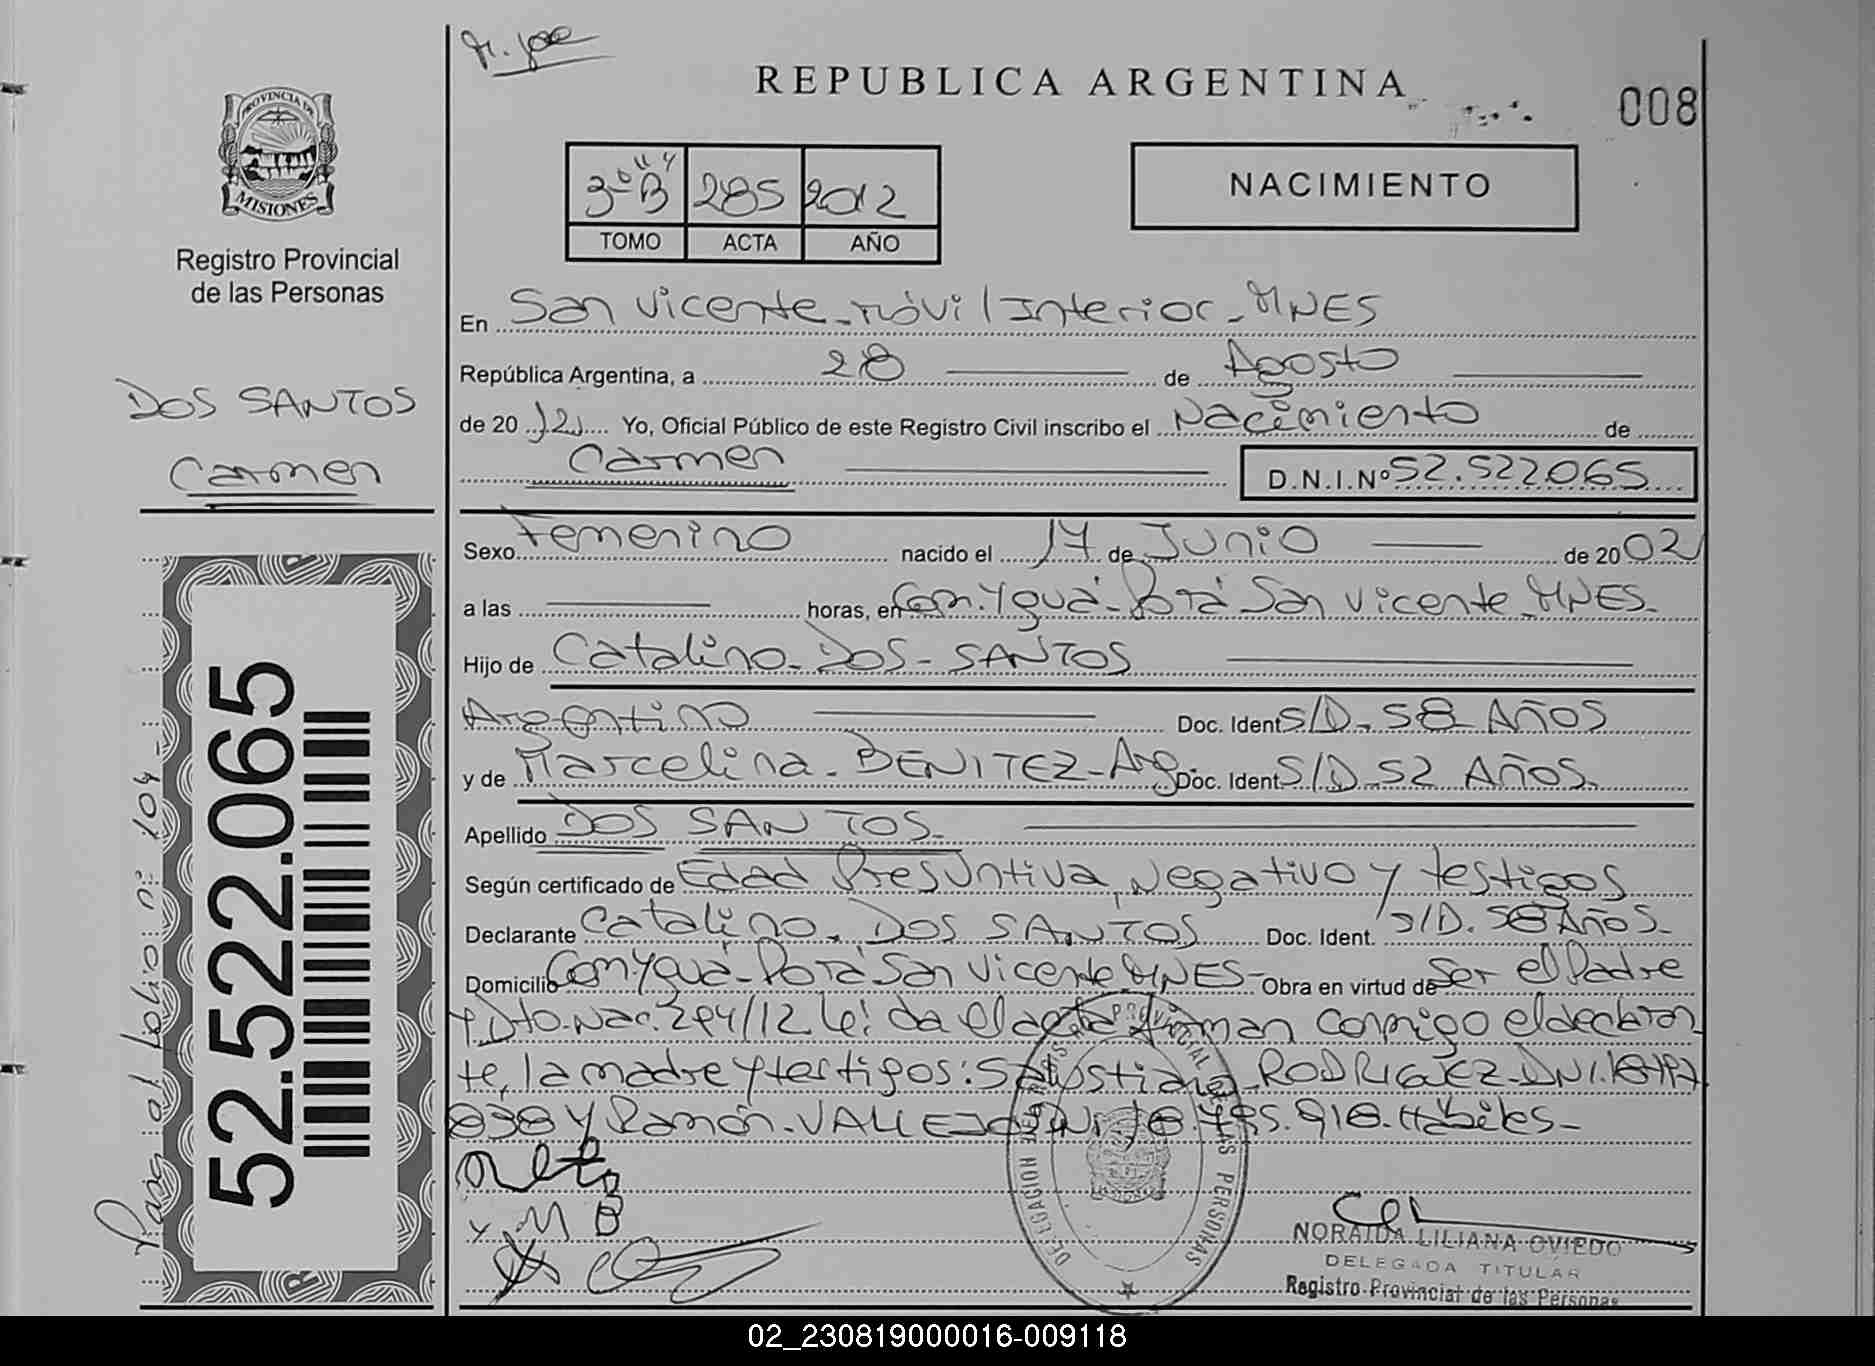 REPUBLICA ARGENTINA
008
PROVINCIA DE
MISIONES
Registro Provincial
de las Personas
3º "B" 285 2012
TOMO ACTA AÑO
NACIMIENTO
DOS SANTOS
Carmen
En San Vicente - móvil Interior - MNES
República Argentina, a 28 de Agosto
de 20 12 Yo, Oficial Público de este Registro Civil inscribo el Nacimiento de
Carmen D.N.I.Nº 52.522.065
Sexo Femenino nacido el 17 de Junio de 20 02
a las horas, en Com. Yguá - Porá San Vicente MNES-
Hijo de Catalino - DOS - SANTOS
Argentino Doc. Ident S/D - 58 AÑOS
y de Marcelina - BENITEZ - Arg. Doc. Ident S/D - 52 AÑOS.
Apellido DOS SANTOS-
Según certificado de Edad Presuntiva, Negativo y testigos
Declarante Catalino - DOS SANTOS Doc. Ident. S/D. 58 AÑOS-
Domicilio Com. Yguá - Porá San Vicente MNES - Obra en virtud de Ser el Padre
y Dto. Nac. 294/12 da el acta firman conmigo el declaran
te, la madre y testigos: Salustiano - RODRIGUEZ - DNI.
838 y Ramón - VALLEJOS 918. Hábiles-
M B
52.522.065
Pasa al folio nº 104 -
DELEGACION DEL REGISTRO PROVINCIAL DE LAS PERSONAS
NORAIDA LILIANA OVIEDO
DELEGADA TITULAR
Registro Provincial de las Personas
02_230819000016-009118